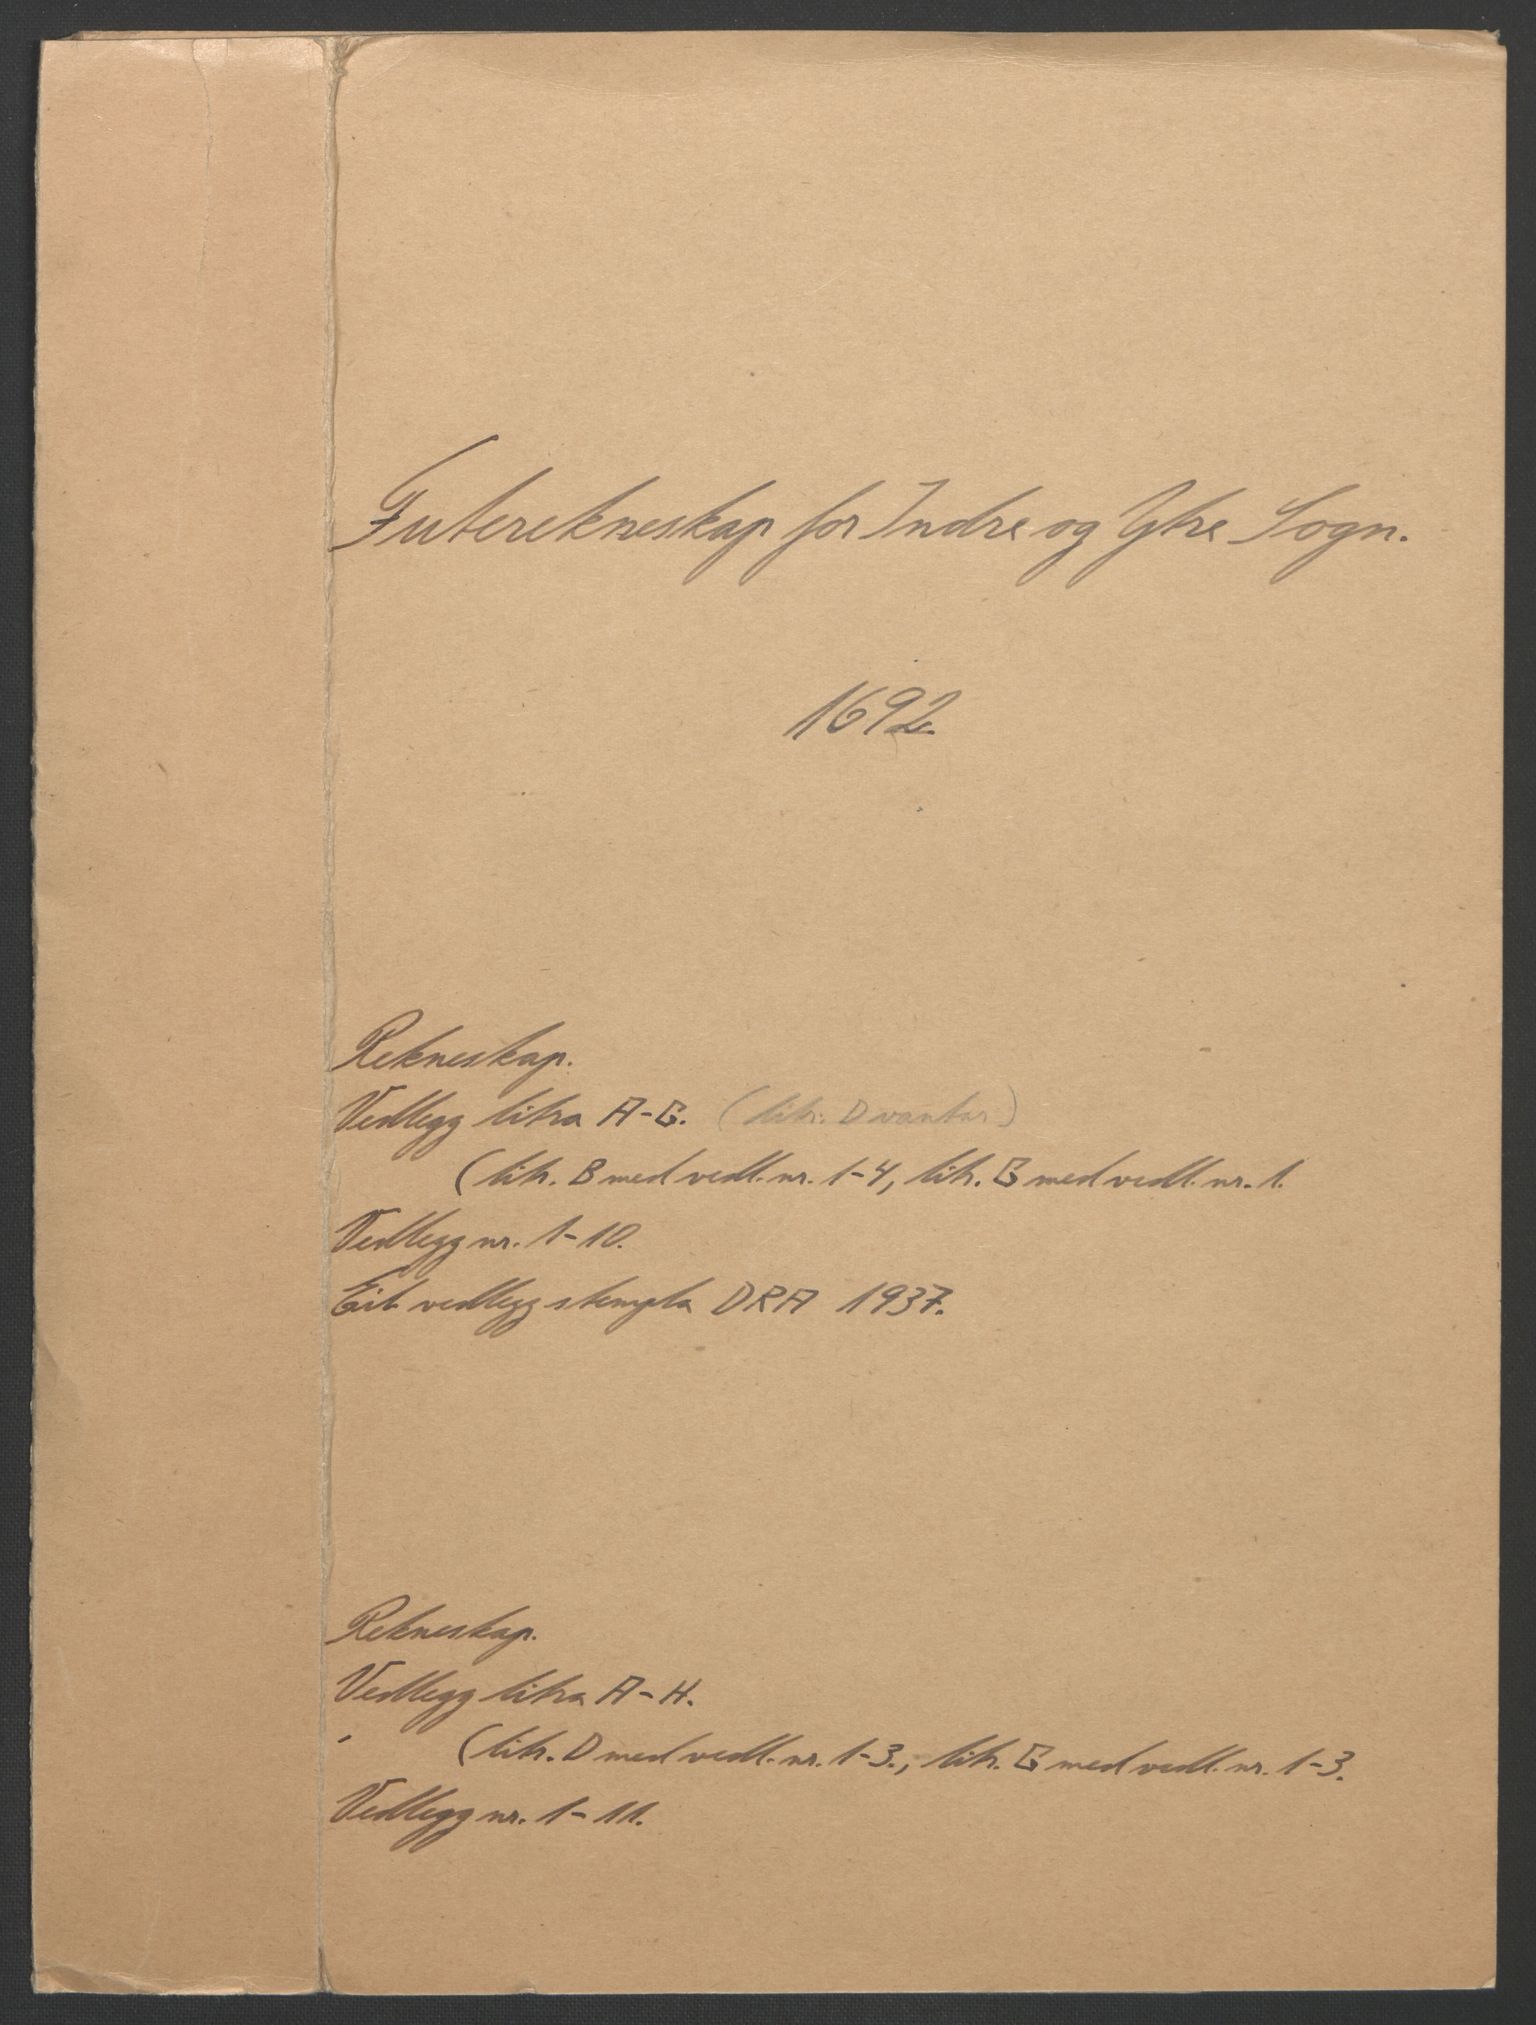 Futerekneskap for Indre og Ytre Sogn.
1692.
Rekneskap.
Vedlegg litra A-G. (litr. D vantar)
(litr. B med vedl. nr. 1-4, litr. G med vedl. nr. 1.
Vedlegg nr. 1-10.
Eit vedlegg stempla DRA 1937.
Rekneskap.
Vedlegg litra A-H.
(litr. D med vedl. nr. 1-3., litr. G med vedl. nr. 1-3.
Vedlegg nr. 1-11.